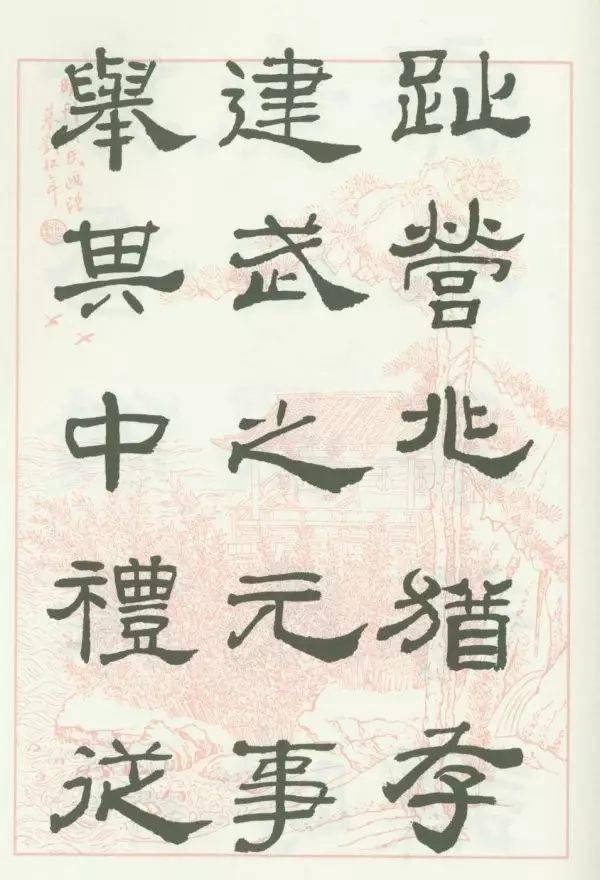 趾營兆猶存
建武之元事
舉其中禮從